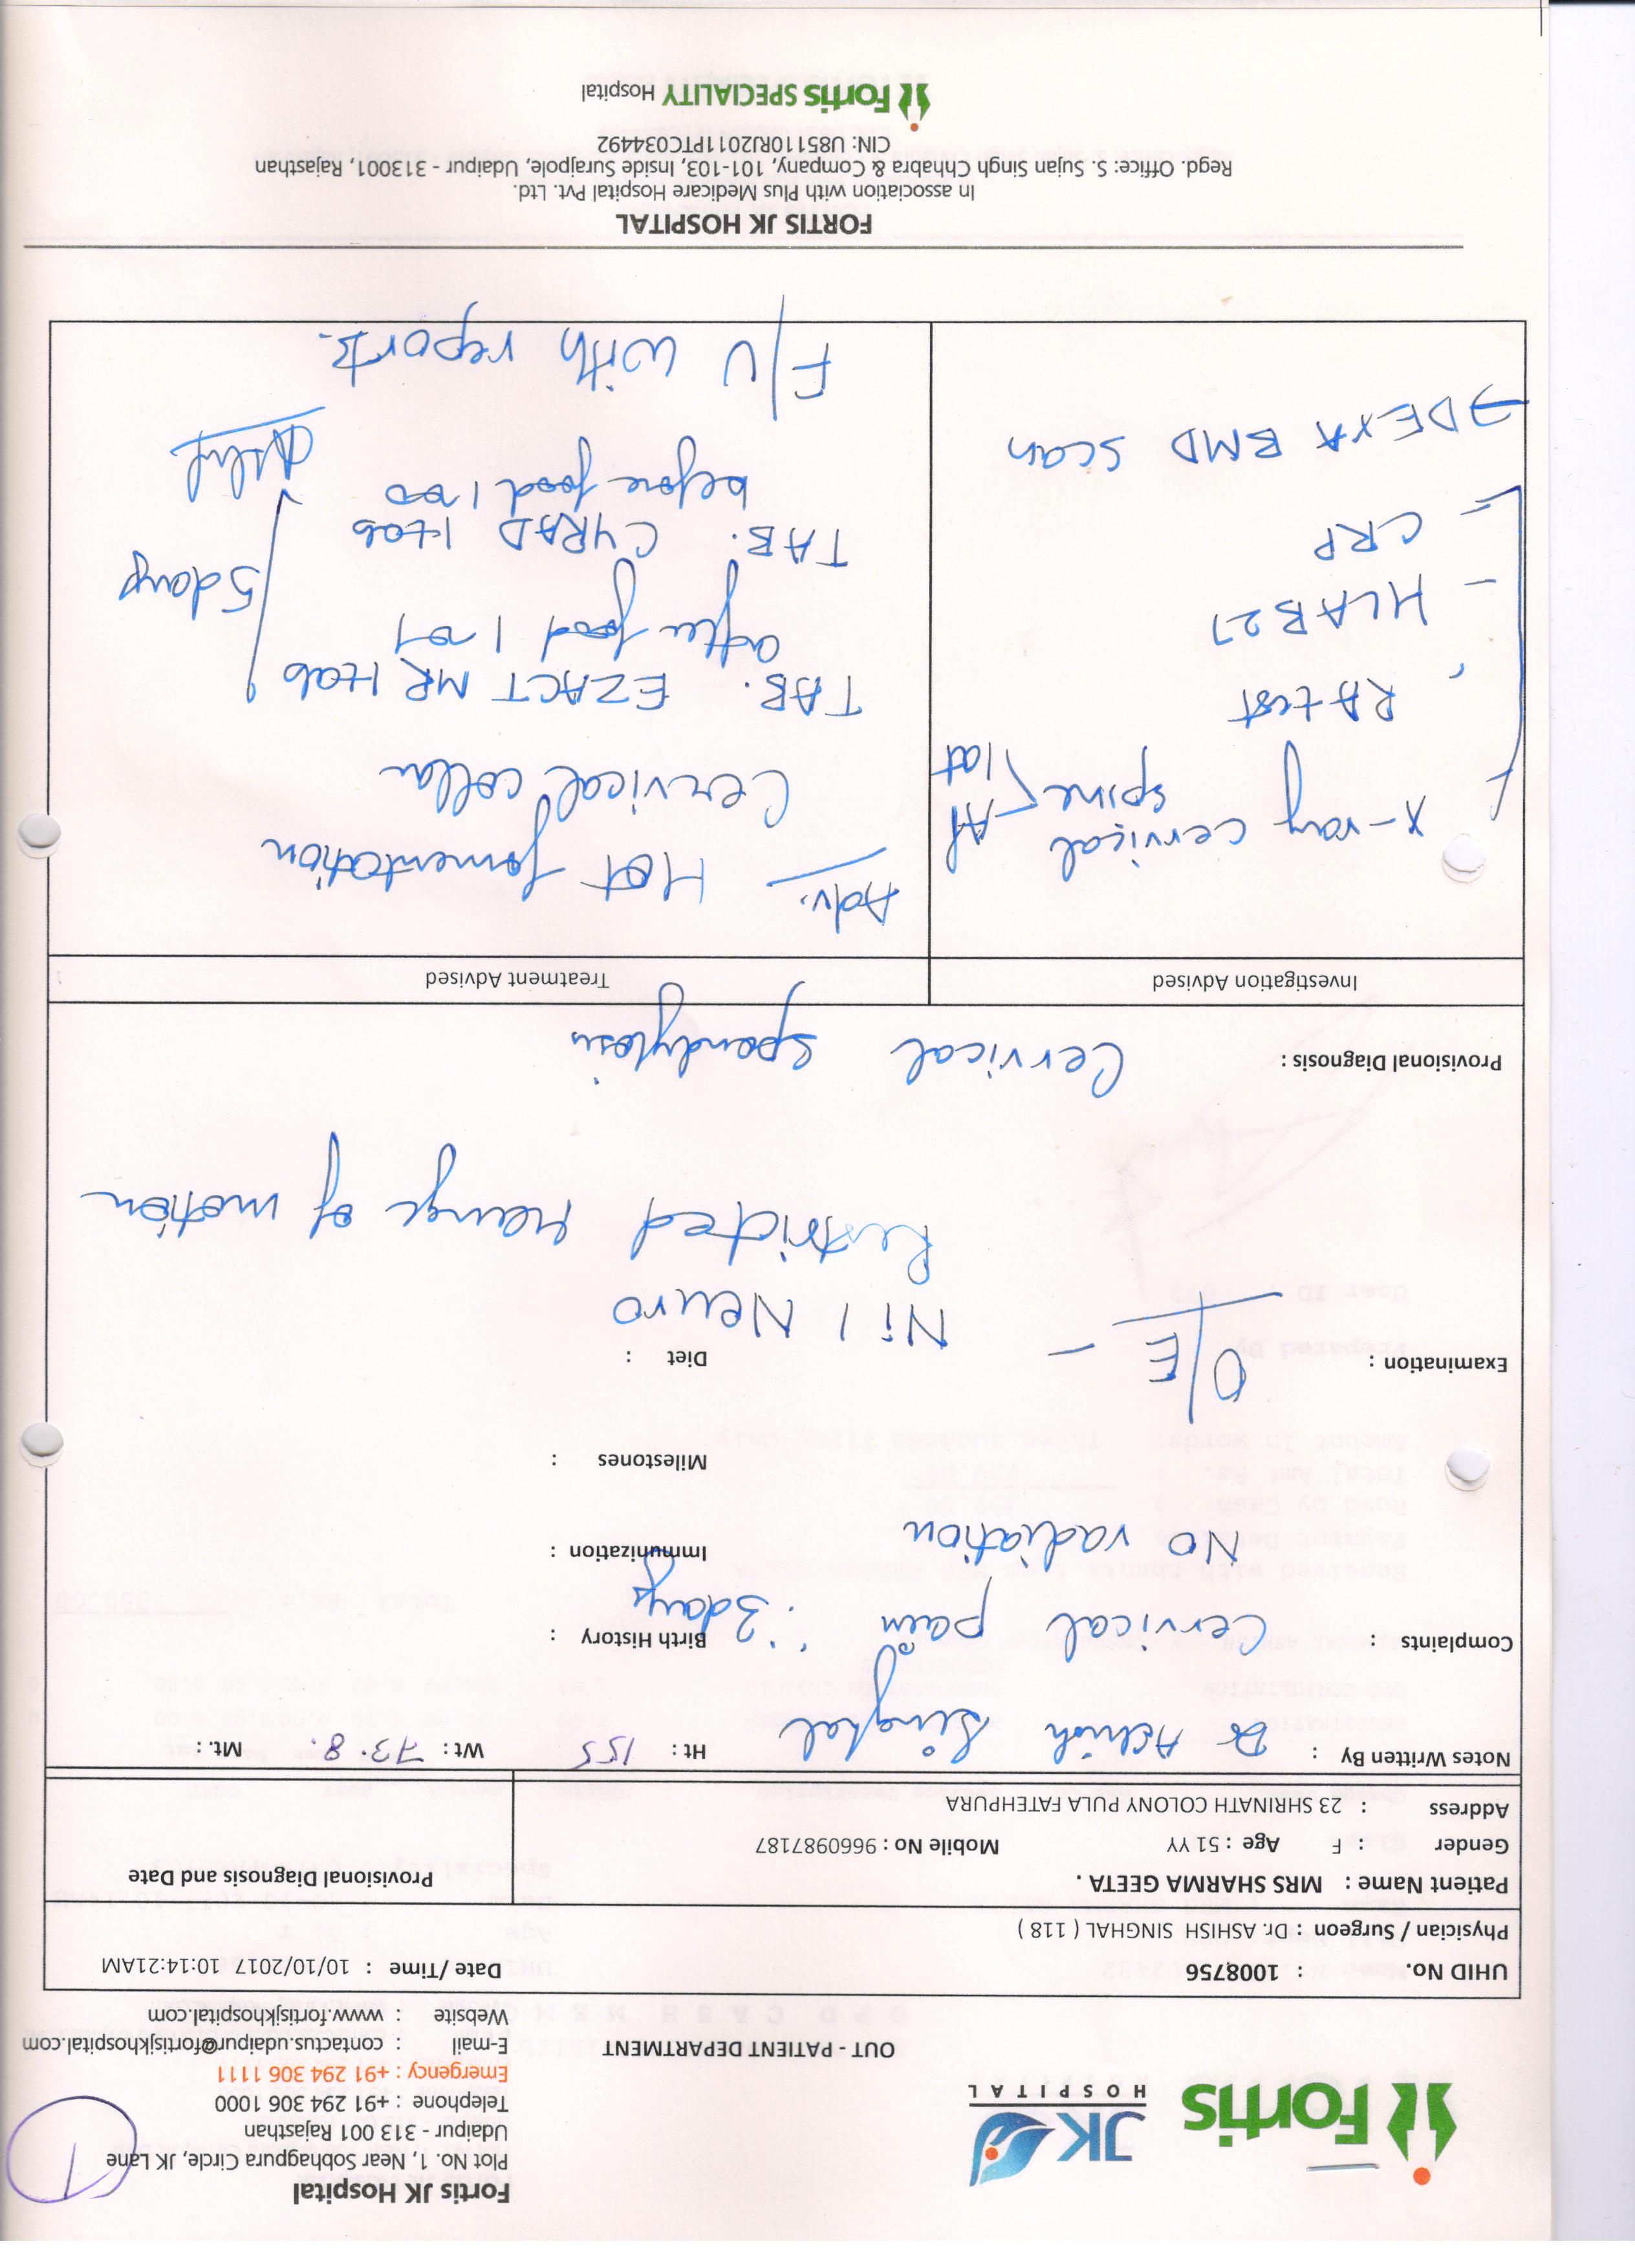 Fortis
JK
HOSPITAL
OUT - PATIENT DEPARTMENT
Fortis JK Hospital
Plot No. 1, Near Sobhagpura Circle, JK Lane
Udaipur - 313 001 Rajasthan
Telephone : +91 294 306 1000
Emergency : +91 294 306 1111
E-mail : contactus.udaipur@fortisjkhospital.com
Website : www.fortisjkhospital.com
1
UHID No. : 1008756
Date /Time : 10/10/2017 10:14:21AM
Physician / Surgeon : Dr. ASHISH SINGHAL ( 118 )
Patient Name : MRS SHARMA GEETA .
Provisional Diagnosis and Date
Gender : F Age : 51 YY Mobile No : 9660987187
Address : 23 SHRINATH COLONY PULA FATEHPURA
Notes Written By : Dr Ashish Singhal Ht : 155 Wt : 73.8. Mt. :
Complaints : Cervical pain : 3days
Birth History :
No radiation
Immunization :
Milestones :
Examination : O/E - Nil Neuro
Diet :
Restricted range of motion
Provisional Diagnosis : Cervical Spondylosis
Investigation Advised
X-ray cervical spine AP lat
RA test
- HLA B27
- CRP
→ DEXA BMD scan
Treatment Advised
Adv. Hot fomentation
Cervical collar
TAB. EZACT MR 1tab
after food 1-0-1
TAB. CYRAD 1tab
before food 1-0-0
5days
F/U with reports.
FORTIS JK HOSPITAL
In association with Plus Medicare Hospital Pvt. Ltd.
Regd. Office: S. Sujan Singh Chhabra & Company, 101-103, Inside Surajpole, Udaipur - 313001, Rajasthan
CIN: U85110RJ2011PTC034492
Fortis SPECIALITY Hospital